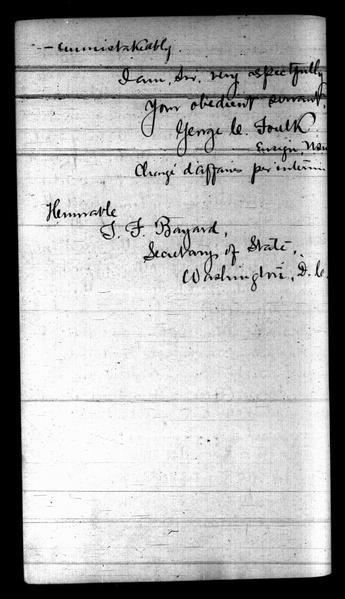 — unmistakably.
I am, Sir, very respectfully
Your obedient servant,
George C. Foulk
Ensign
Chargé d'affaires per interim
Honorable
T. F. Bayard,
Secretary of State,
Washington, D.C.